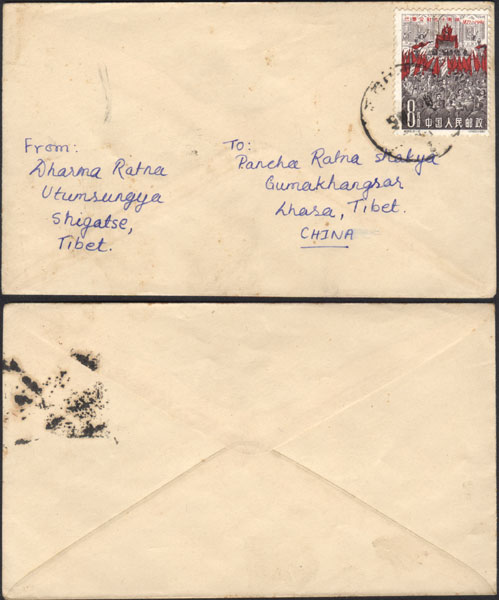 From:
Dharma Ratna
Utumsungya
Shigatse,
Tibet.
To:
Pancha Ratna Shakya
Gumakhangsar
Lhasa, Tibet.
CHINA
8
中国人民邮政